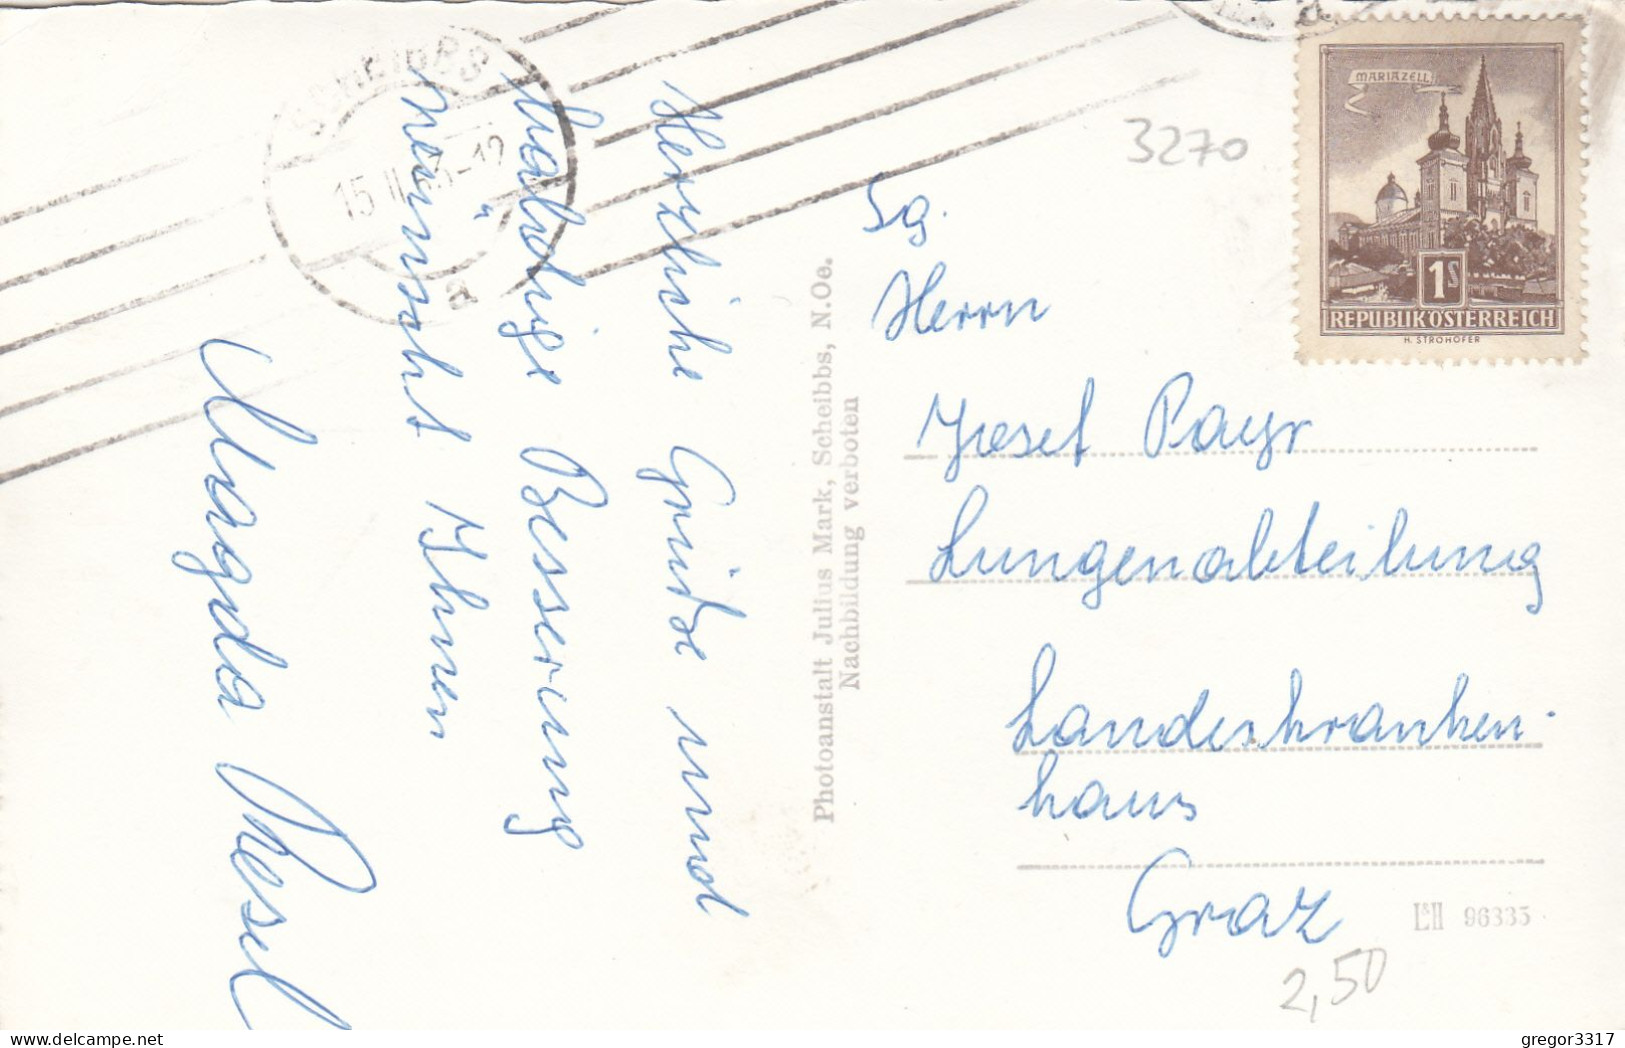 Herzliche Grüße und
baldige Besserung
wünscht Ihnen
Magda Resel
Photoanstalt Julius Mark, Scheibbs, N.Oe.
Nachbildung verboten
SCHEIBBS
a
3270
MARIAZELL
1S
REPUBLIK ÖSTERREICH
H. STROHOFER
Sg.
Herrn
Josef Payr
Lungenabteilung
Landeskranken-
haus
Graz
L&H 96335
2,50
gregor3317